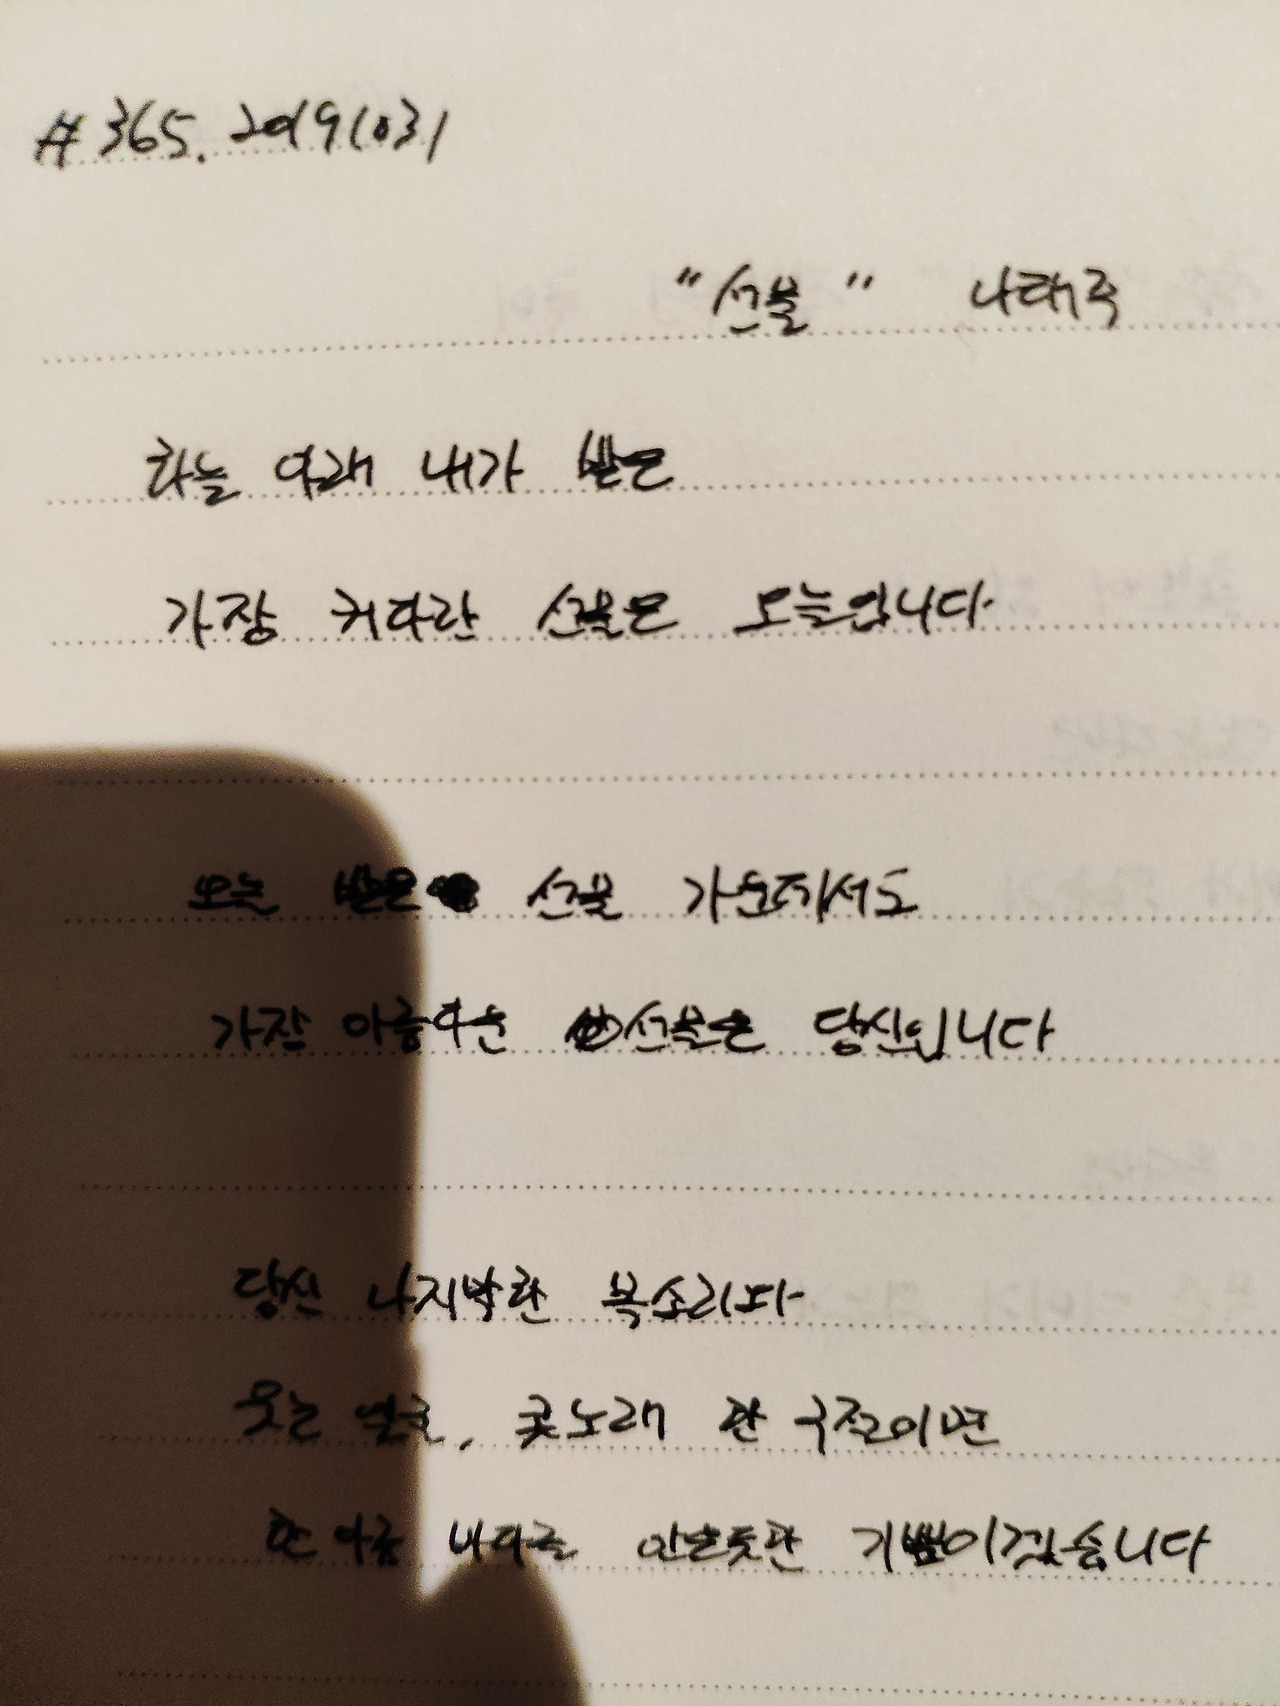 #365. 20191031
"선물" 나태주
하늘 아래 내가 받은
가장 커다란 선물은 오늘입니다.
오늘 받은 선물 가운데서도
가장 아름다운 선물은 당신입니다
당신 나지막한 목소리와
웃는 얼굴, 콧노래 한 구절이면
한 아름 바다를 안은듯한 기쁨이겠습니다